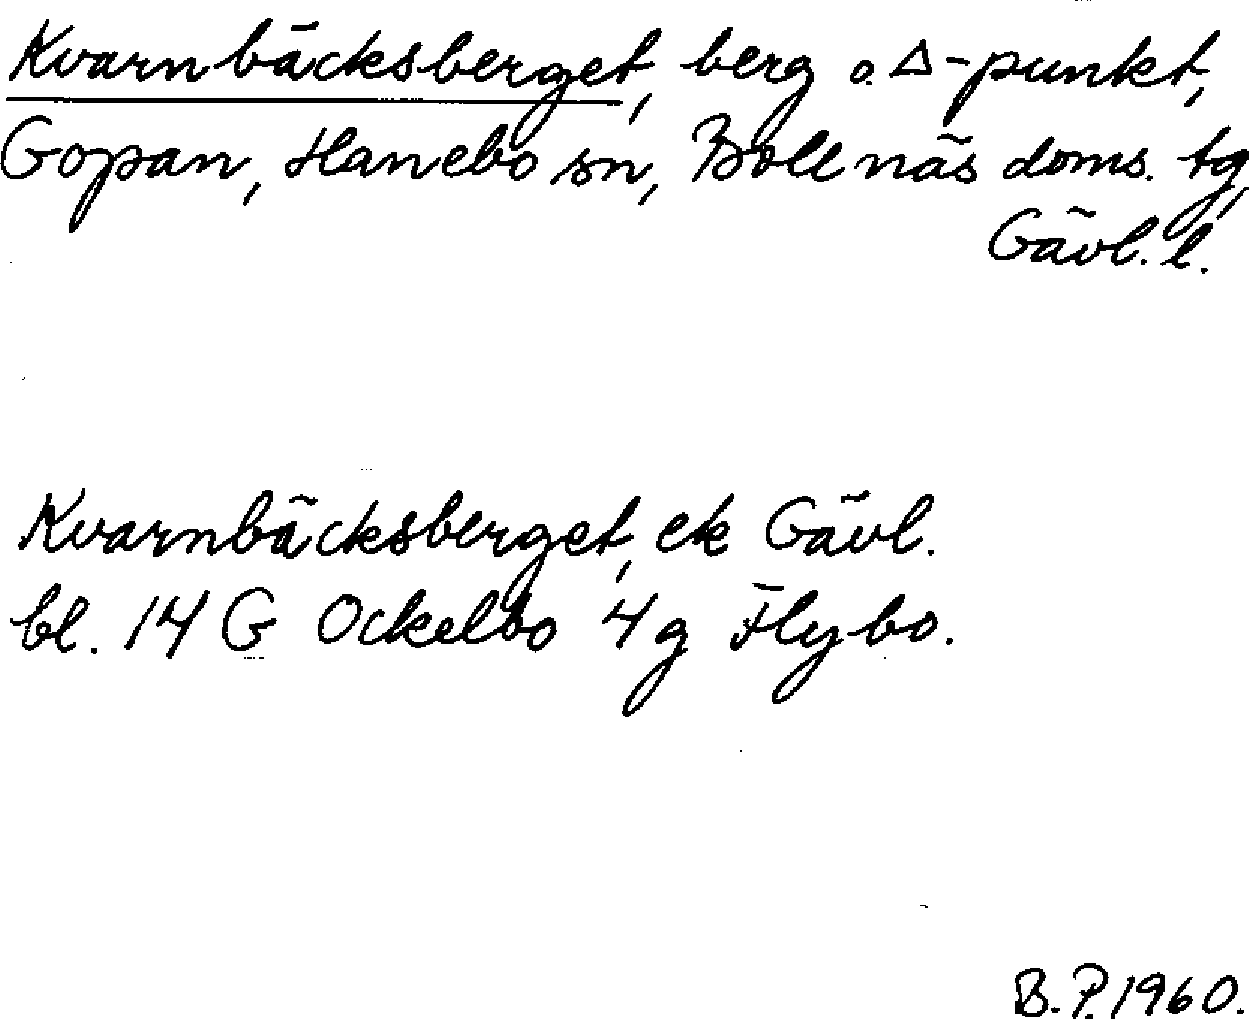 Kvarnbäcksberget, berg o. Δ-punkt,
Gopan, Hanebo sn, Bollnäs doms. tg,
Gävl. l.
Kvarnbäcksberget, ek Gävl.
bl. 14 G Ockelbo 4g Flybo.
B.P. 1960.